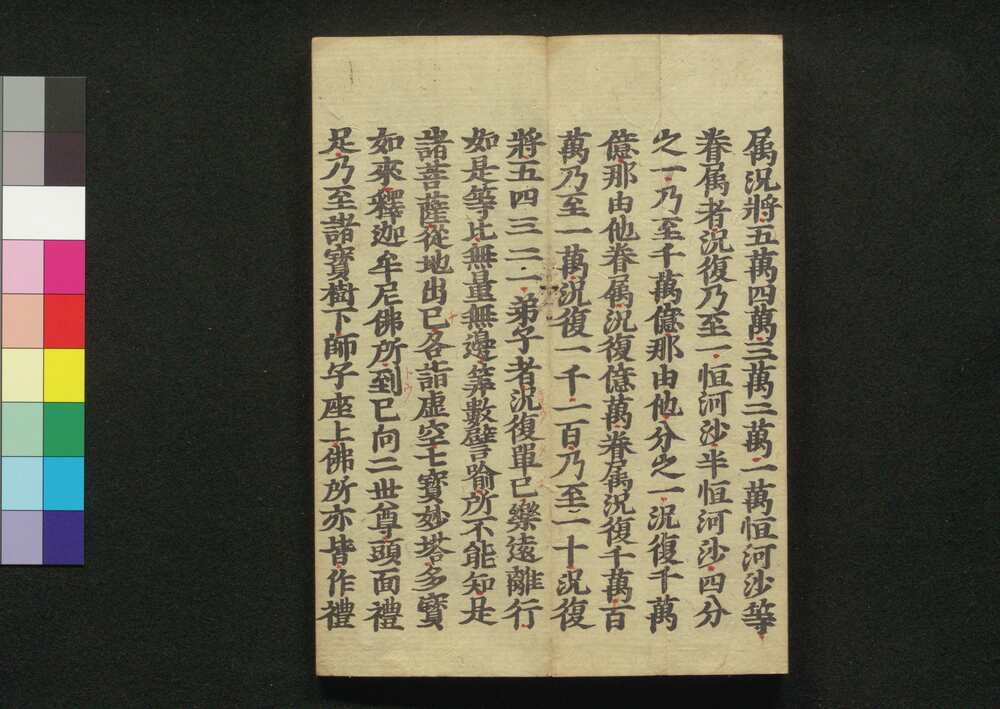 属況將五萬四萬三萬二萬一萬恒河沙等
眷属者況復乃至一恒河沙半恒河沙四分
之一乃至千萬億那由他分之一況復千萬
億那由他眷属況復億萬眷属況復千萬百
萬乃至一萬況復一千一百乃至一十況復
將五四三二一弟子者況復單已樂遠離行
如是等比無量無邊筭數譬喻所不能知是
諸菩薩從地出已各詣虛空七寶妙塔多寶
如來釋迦牟尼佛所到已向二世尊頭面禮
足乃至諸寶樹下師子座上佛所亦皆作禮